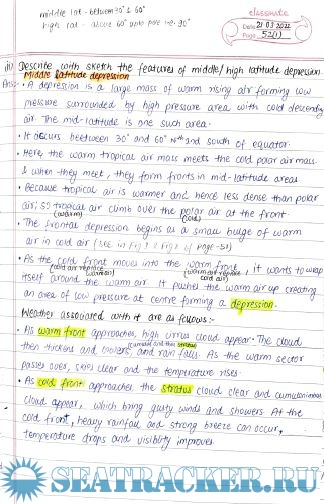 middle lat - between 30° & 60°
high lat - above 60° upto pole i.e. 90°
classmate
Date 21 03 2022
Page 52(1)
iii) Describe with sketch the features of middle/high latitude depression.
Middle latitude depression
Ans:- • A depression is a large mass of warm rising air forming low
pressure surrounded by high pressure area with cold descending
air. The mid-latitude is one such area.
• It occurs beetween 30° and 60° north and south of equator.
• Here, the warm tropical air mass meets the cold polar air mass.
& when they meet, they form fronts in mid-latitude areas
• Because tropical air is warmer and hence less dense than polar
air; so tropical air climb over the polar air at the front.
(warm) (cold)
• The frontal depression begins as a small bulge of warm
air in cold air (see in Fig of Page-51)
• As the cold front moves into the warm front, it wants to wrap
(cold air replace warm air) (warm air replace cold air)
itself around the warm air. It pushes the warm air up creating
an area of low pressure at centre forming a depression.
Weather associated with it are as follows:-
• As warm front approaches, high cirrus cloud appear. The cloud
then thickens and lowers, and rain falls. As the warm sector
(cumulus and then stratus)
passes over, skies clear and the temperature rises.
• As cold front approaches the stratus cloud clear and cumulonimbus
cloud appear, which bring gusty winds and showers At the
cold front, heavy rainfall and strong breeze can occur,
temperature drops and visiblity improves
SEATRACKER.RU